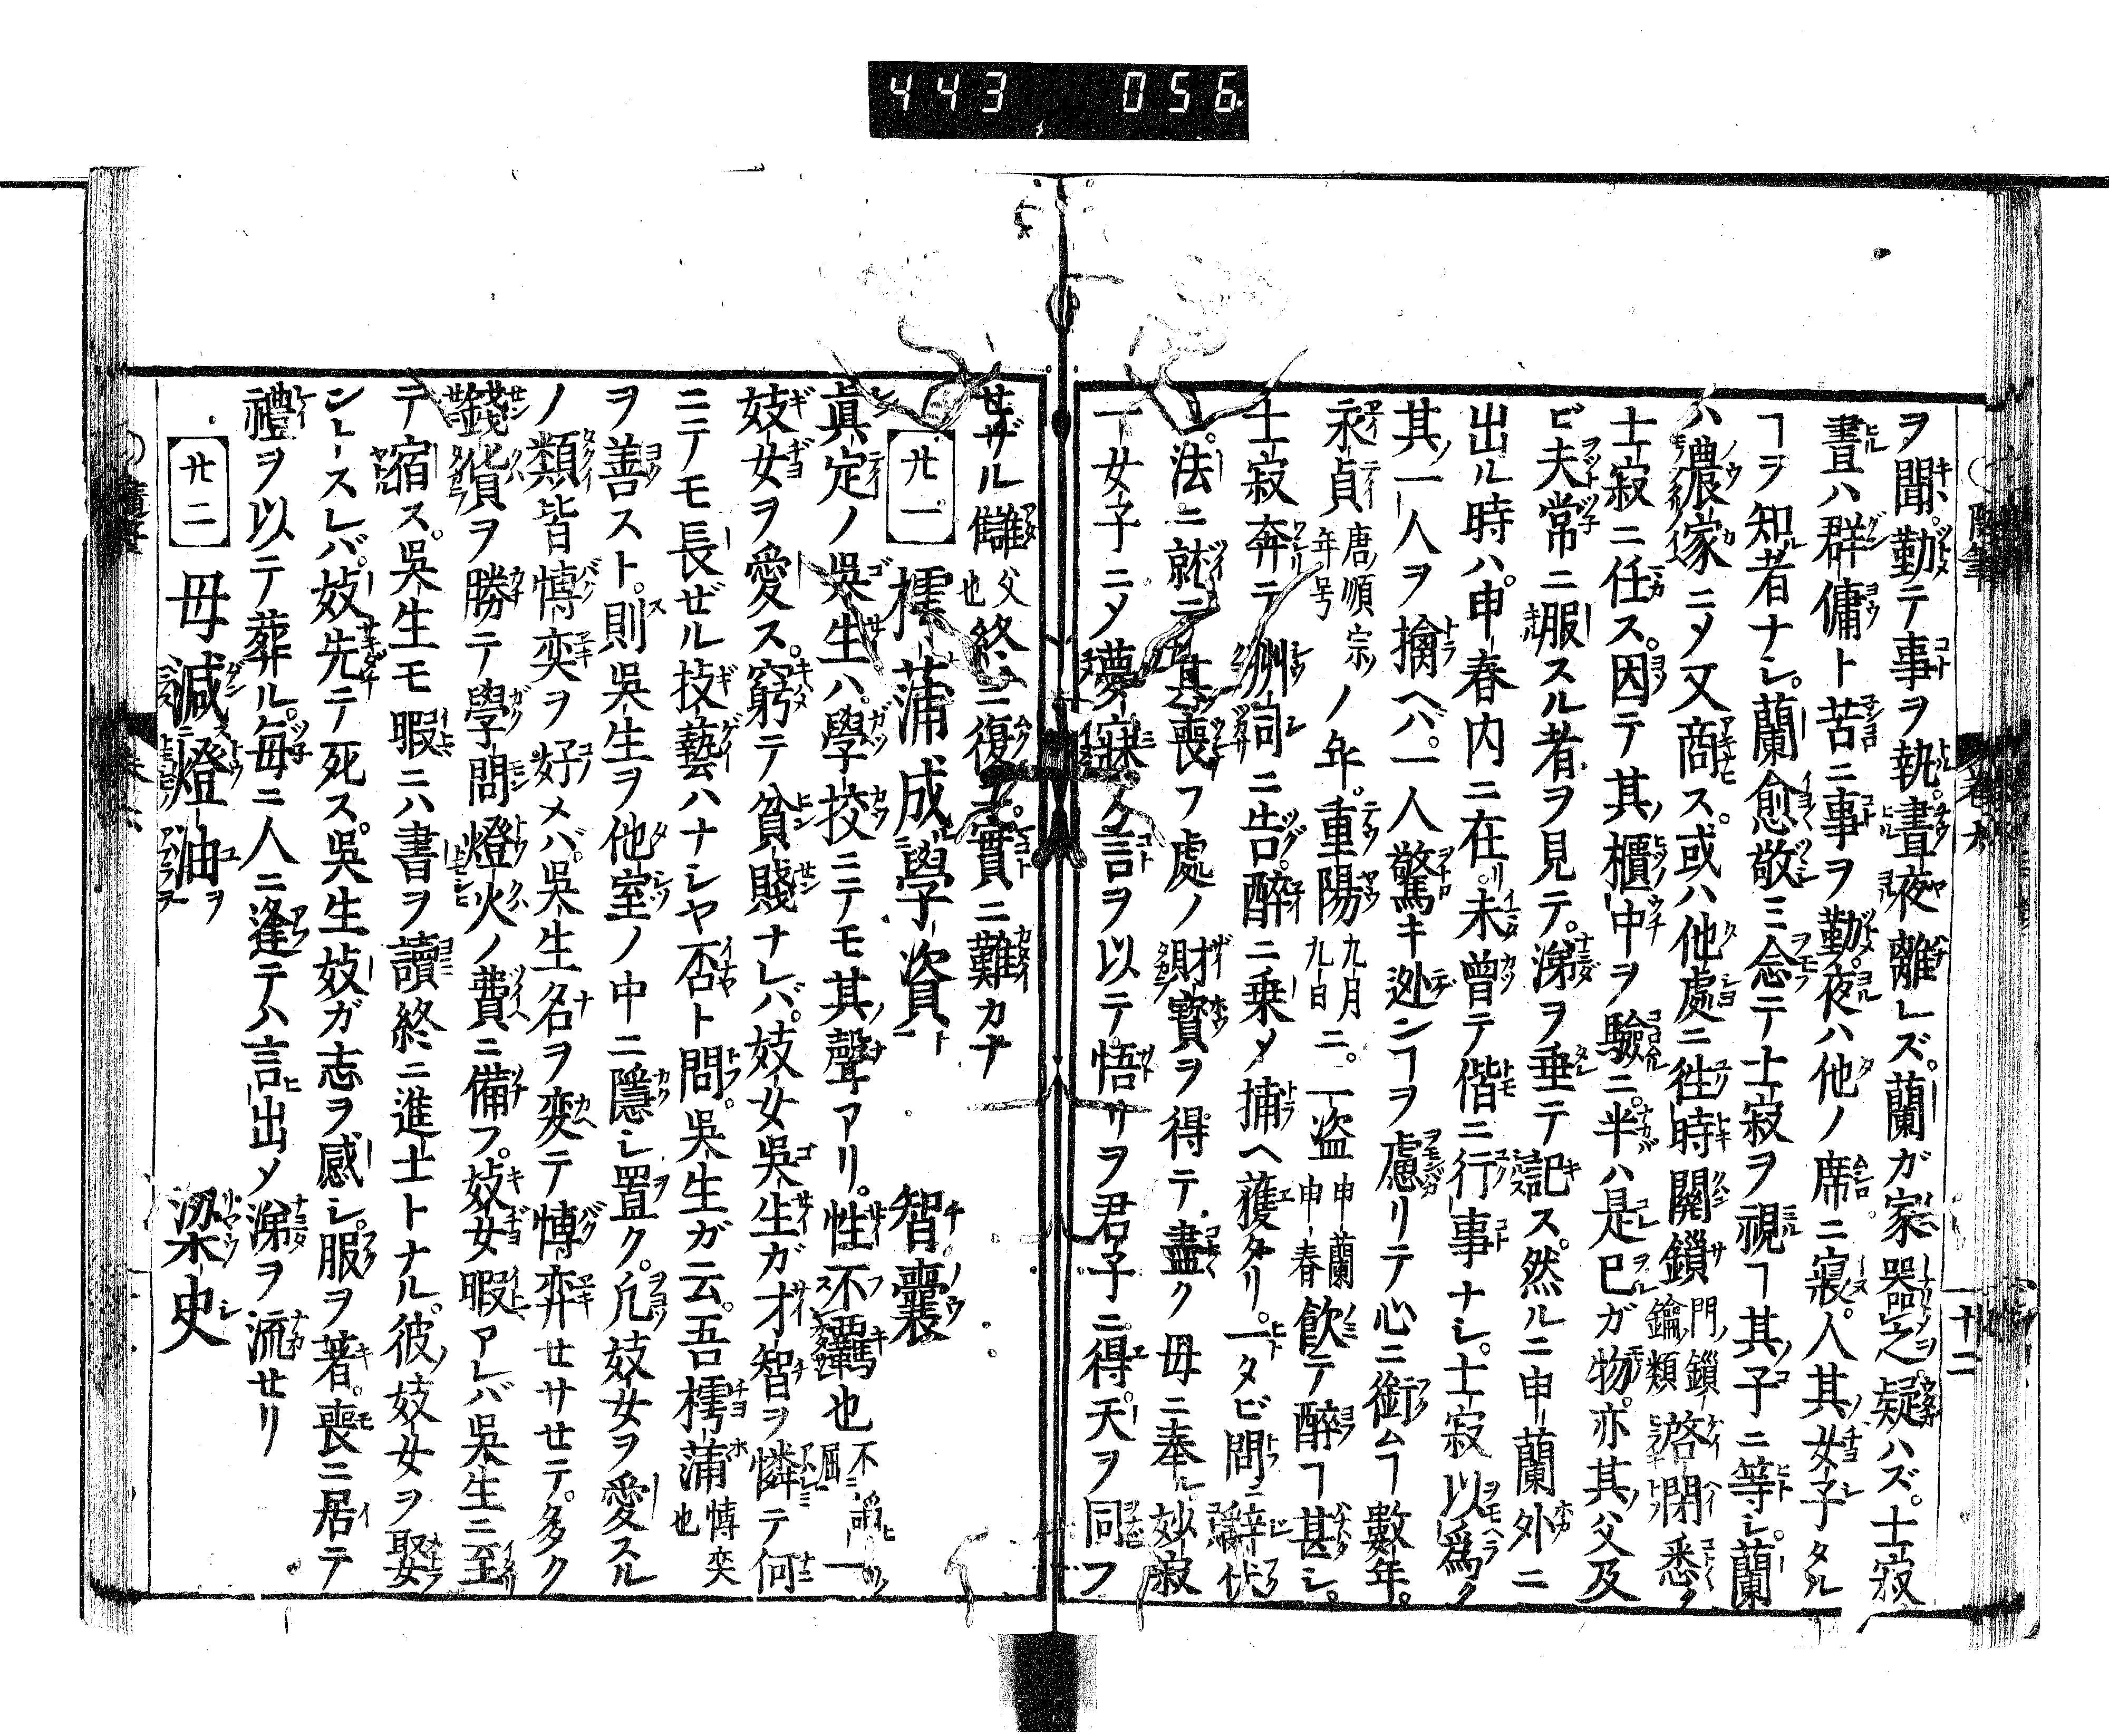 443 056
ヲ聞。勤テ事ヲ執。晝夜離レズ。蘭ガ家器之。疑ハズ。士寂
晝ハ群傭ト苦ニ事ヲ勤。夜ハ他ノ席ニ寢。人其女子タル
ヿヲ知者ナシ。蘭愈敬ミ念テ士寂ヲ視ヿ其子ニ等シ。蘭
ハ農家ニメ又商ス。或ハ他處ニ徃時關鎖門鎖鑰類啓閉悉ク
士寂ニ任ス。因テ其櫃中ヲ驗ニ。半ハ是巳ガ物。亦其父及
ビ夫常ニ服スル者ヲ見テ。涕ヲ垂テ記ス。然ルニ申蘭外ニ
出ル時ハ。申春内ニ在リ。未曾テ偕ニ行事ナシ。士寂以爲ク
其一人ヲ擒ヘバ。一人驚キ迯ンヿヲ慮リテ心ニ銜ムヿ數年。
永貞唐順宗ノ年号ノ年。重陽九月九日ニ。一盗申蘭申春飲テ醉ヿ甚シ。
士寂奔テ州祠ニ告。醉ニ乗メ捕ヘ獲タリ。一タビ問ニ辭伏
ス。法ニ就ニ其喪フ處ノ財寳ヲ得テ。盡ク毋ニ奉ル。妙寂
一女子ニメ夢寐ノ言ヲ以テ。悟サヲ君子ニ得。天ヲ同フ
せザル讎父也終ニ復ス。實ニ難カナ
廿一 樗蒲成學資 智囊
眞定ノ吳生ハ。學挍ニテモ其聲アリ。性不羈也不屈
妓女ヲ愛ス。窮テ貧賤ナレバ。妓女吳生ガ才智ヲ憐テ何
ニテモ長ぜル技藝ハナシヤ否ト問。吳生ガ云。吾樗蒲博奕也
ヲ善スト。則吳生ヲ他室ノ中ニ隱シ置ク。凢妓女ヲ愛スル
ノ類皆博奕ヲ好メバ。吳生名ヲ変テ博弈せサせテ。多ク
錢貨ヲ勝テ學問燈火ノ費ニ備フ。妓女暇アレバ吳生ニ至
テ宿ス。吳生モ暇ニハ書ヲ讀終ニ進士トナル。彼妓女ヲ娶
ントスレバ。妓先テ死ス。吳生妓ガ志ヲ感シ。服ヲ著。喪ニ居テ
禮ヲ以テ葬ル。毎ニ人ニ逢テハ言出メ涕ヲ流せリ
廿二 毋減燈油ヲ 梁史